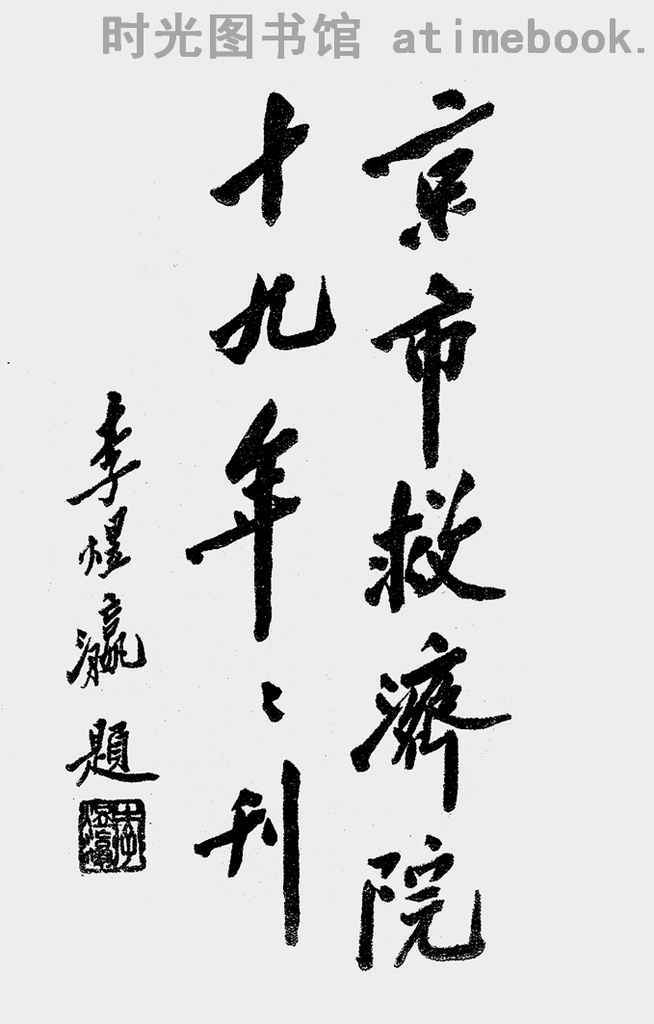 时光图书馆 atimebook.
京市救濟院
十九年〻刊
李煜瀛題